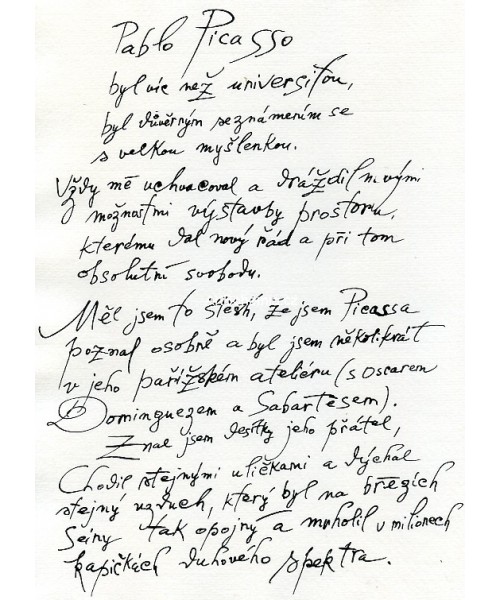 Pablo Picasso
byl víc než universitou,
byl důvěrným seznámením se
s velkou myšlenkou.
Vždy mě uchvacoval a dráždil novými
možnostmi výstavby prostoru,
kterému dal nový řád a při tom
absolutní svobodu.
Měl jsem to štěstí, že jsem Picassa
poznal osobně a byl jsem několikrát
v jeho pařížském ateliéru (s Oscarem
Dominguezem a Sabartèsem).
Znal jsem desítky jeho přátel,
Chodil stejnými uličkami a dýchal
stejný vzduch, který byl na březích
Seiny tak opojný a mrholil v milionech
kapičkách duhového spektra.